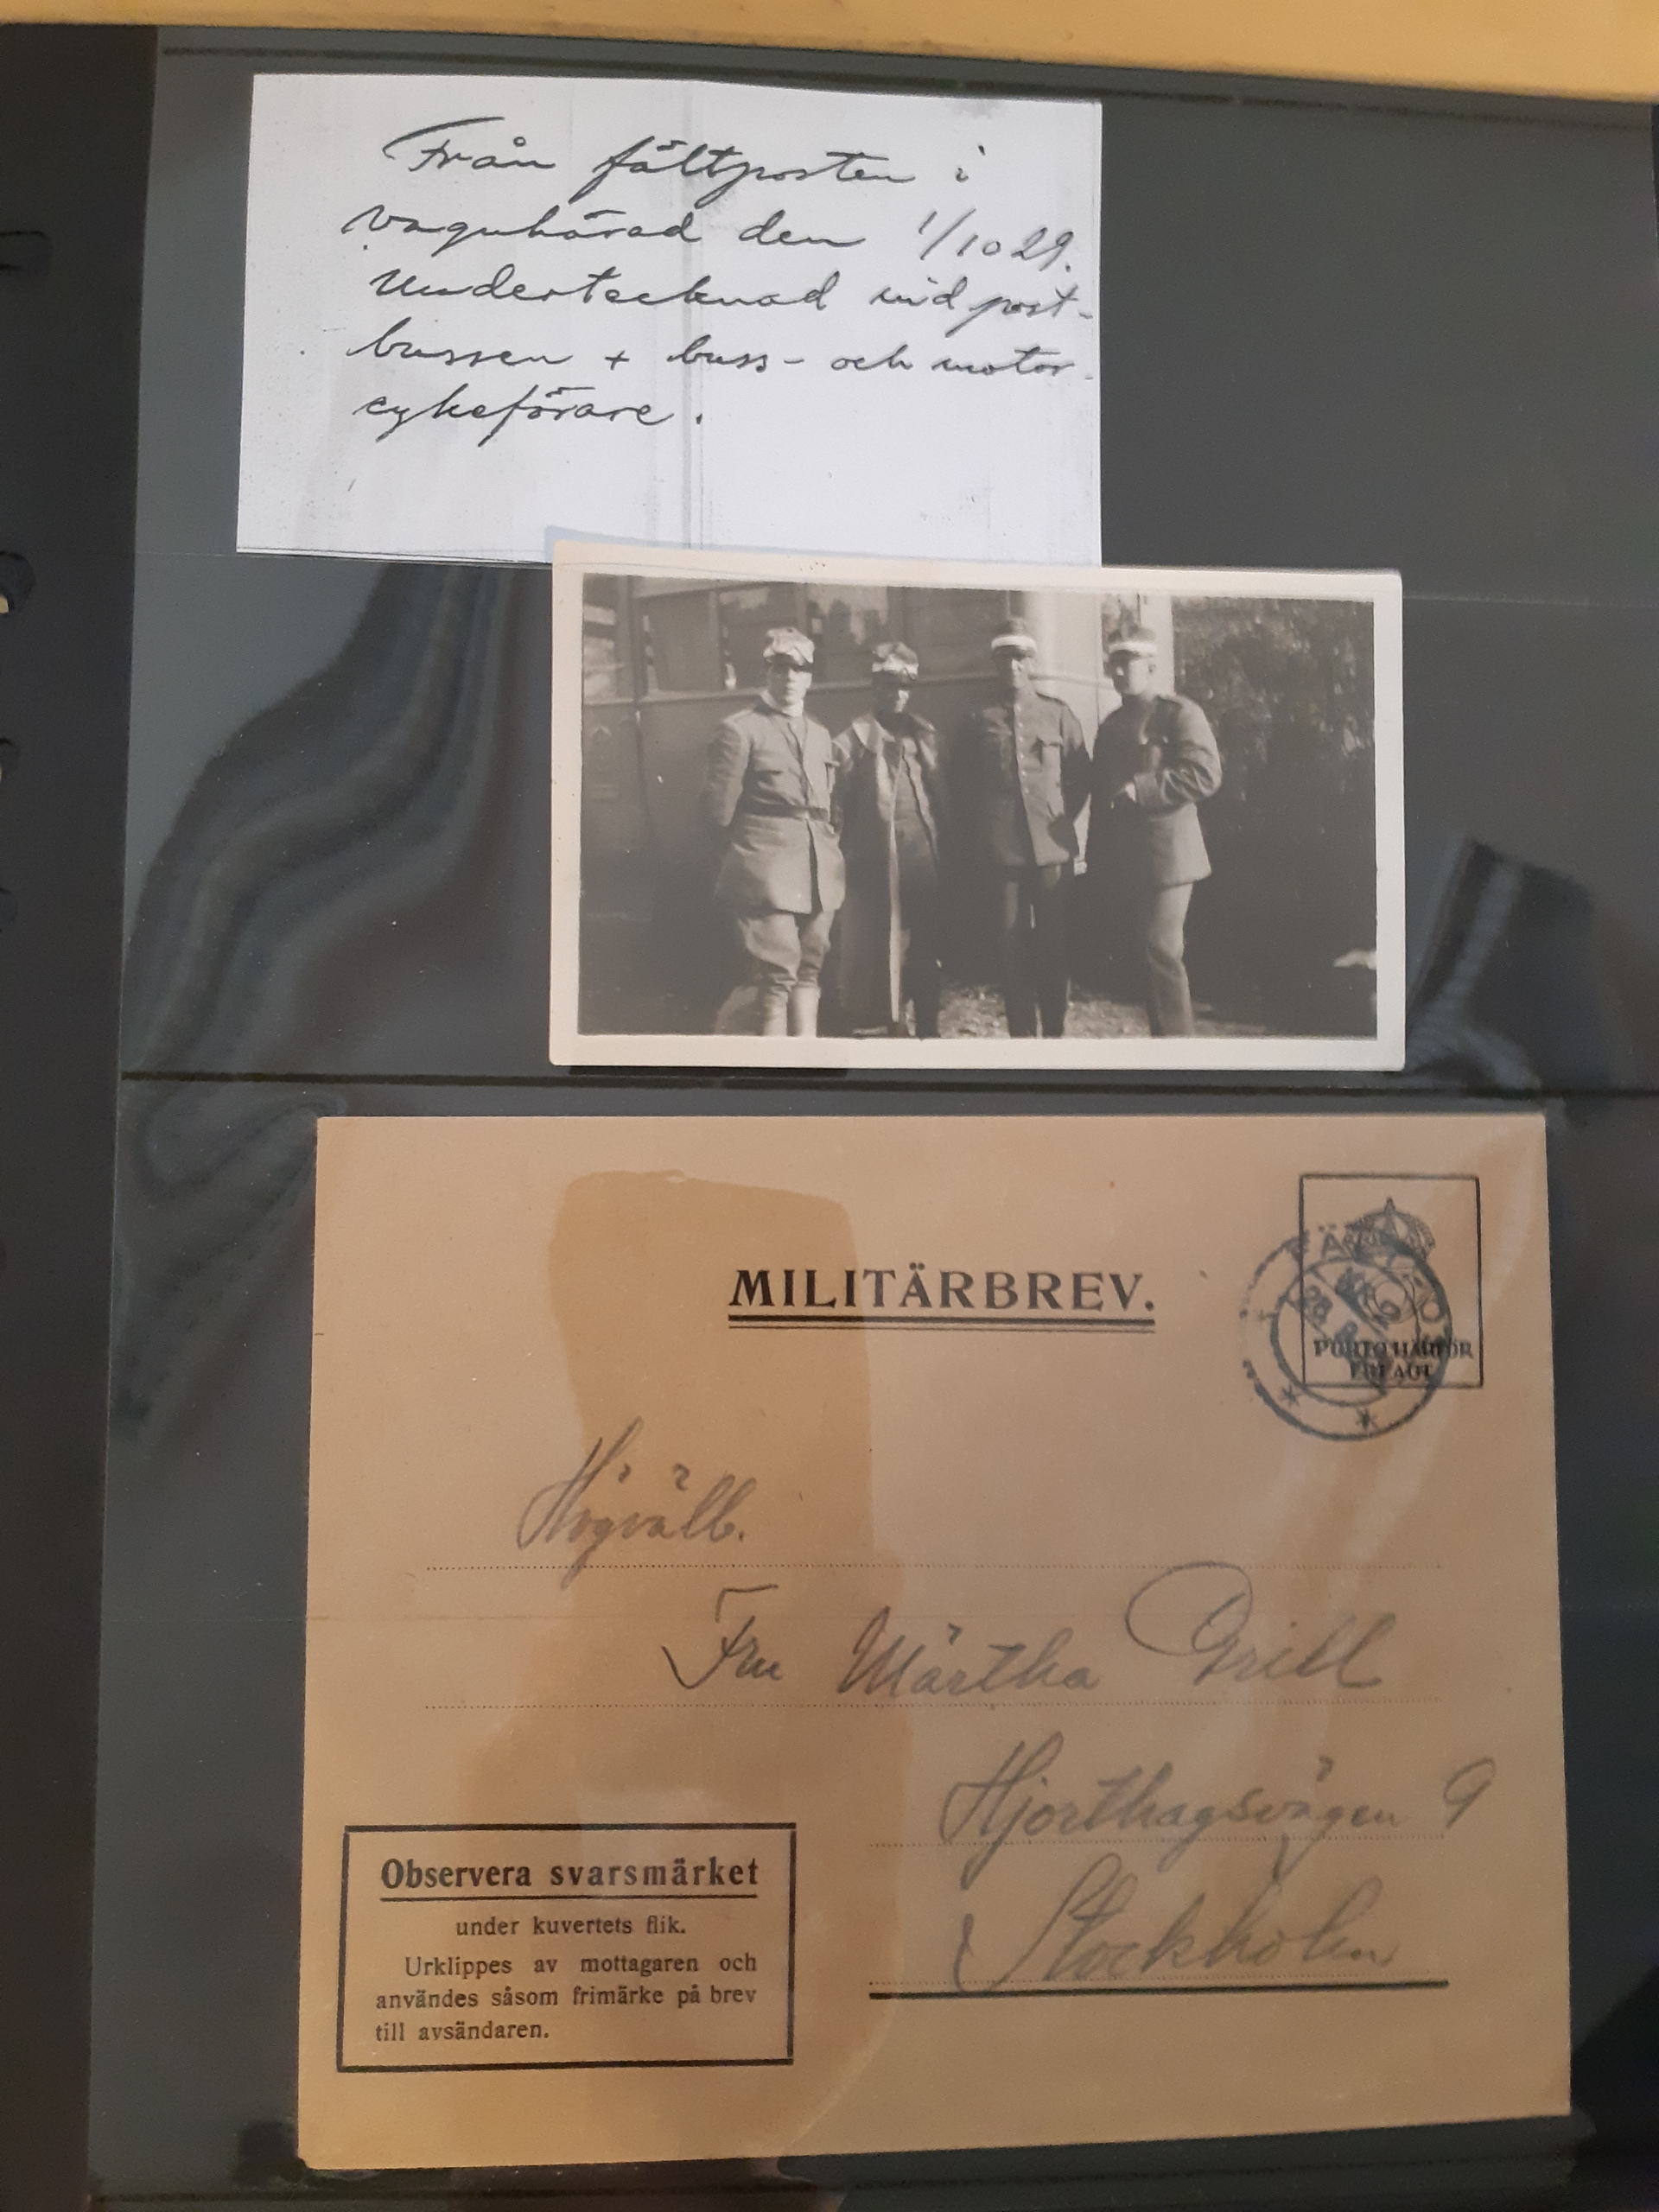 Från fältposten i
Vagnhärad den 1/10 29.
Undertecknad vid post-
bussen + buss- och motor-
cykelförare.
MILITÄRBREV.
PORTO HÄRFÖR
ERLAGT
Högvälb.
Fru Märtha Grill
Hjorthagsvägen 9
Stockholm
Observera svarsmärket
under kuvertets flik.
Urklippes av mottagaren och
användes såsom frimärke på brev
till avsändaren.